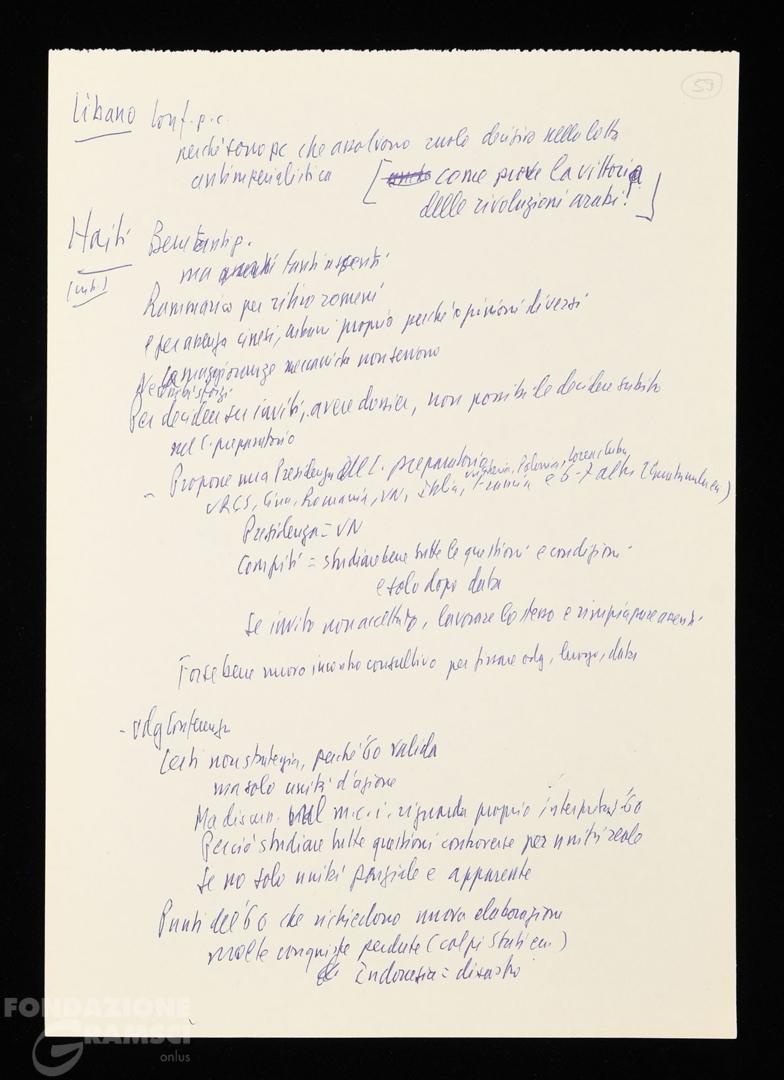 59
Libano Conf. p.c.
perché sono pc che assolvono ruolo decisivo nella lotta
antimperialistica [come prova la vittoria
delle rivoluzioni arabe!]
Haiti Bene tanti p.
ma anche tanti assenti
Rammarico per ritiro romeni
e per assenza cinesi, albanesi proprio perché opinioni diversi
La maggioranza meccanica non servono
Per decidere su inviti, avere dossier, non possibile decidere subito
nel C. preparatorio
- Propone una Presidenza del C. preparatorio
URCS, Cina, Romania, VN, Italia, Ungheria, Polonia, Corea, Cuba, Francia e 6-7 altri
Presidenza = VN
Compiti = studiare bene tutte le questioni e condizioni
e solo dopo data
Se invito non accettato, lavorare lo stesso e rimpiazzare assenti
Forse bene nuovo incontro consultivo per fissare odg, luogo, data
- Odg Conferenza
Certi non strategia, perché '60 valida
ma solo unità d'azione
Ma discuss. nel m.c.i. riguarda proprio interpretaz '60
Perciò studiare tutte questioni controverse per unità reale
Se no solo unità parziale e apparente
Punti del '60 che richiedono nuova elaborazione
molte conquiste perdute (colpi stato ecc.)
Indonesia = disastro
FONDAZIONE
GRAMSCI
onlus